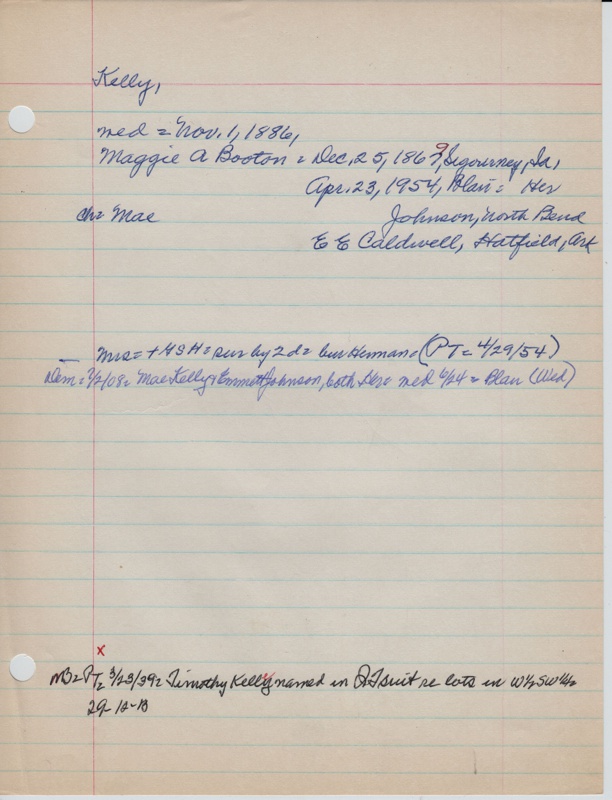 Kelly,
med = Nov. 1, 1886,
Maggie A Booton = Dec. 25, 1869, Sigourney, Ia,
Apr. 23, 1954, Blair = Her
ch = Mae
Johnson, North Bend
E E Caldwell, Hatfield, Ark
Mrs = + HSH = sur by 2 d = bur Herman = (PT = 4/29/54)
Dem = 7/2/08 = Mae Kelly & Emmett Johnson, both Her = med 6/24 = Blair (Wed)
x
NB = PT = 3/23/39 = Timothy Kelly named in QT suit re lots in W½SW¼ =
29-12-13